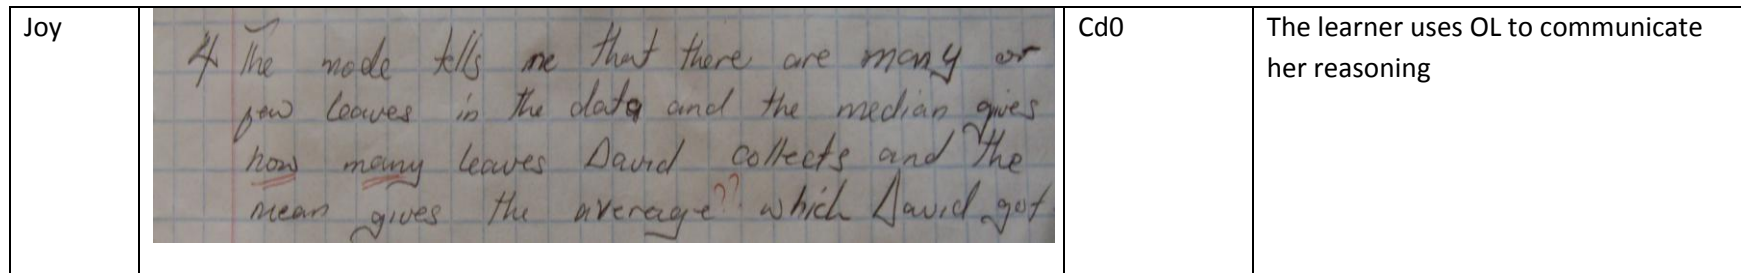 Joy
4 The mode tells me that there are many or
few leaves in the data and the median gives
how many leaves David collects and the
mean gives the average?? which David got
Cd0
The learner uses OL to communicate
her reasoning